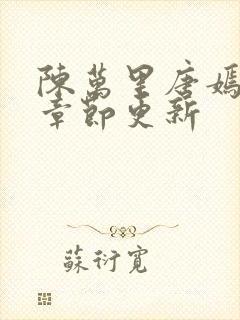 陳萬里唐嫣
章節更新
蘇衍寬